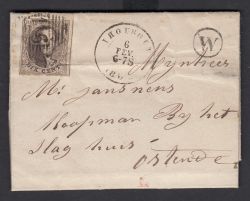 DIX CENT
6
FEV
6-7S
W
Mynheer
Mr. Janssens
Koopman By het
Slag huis
Ostende